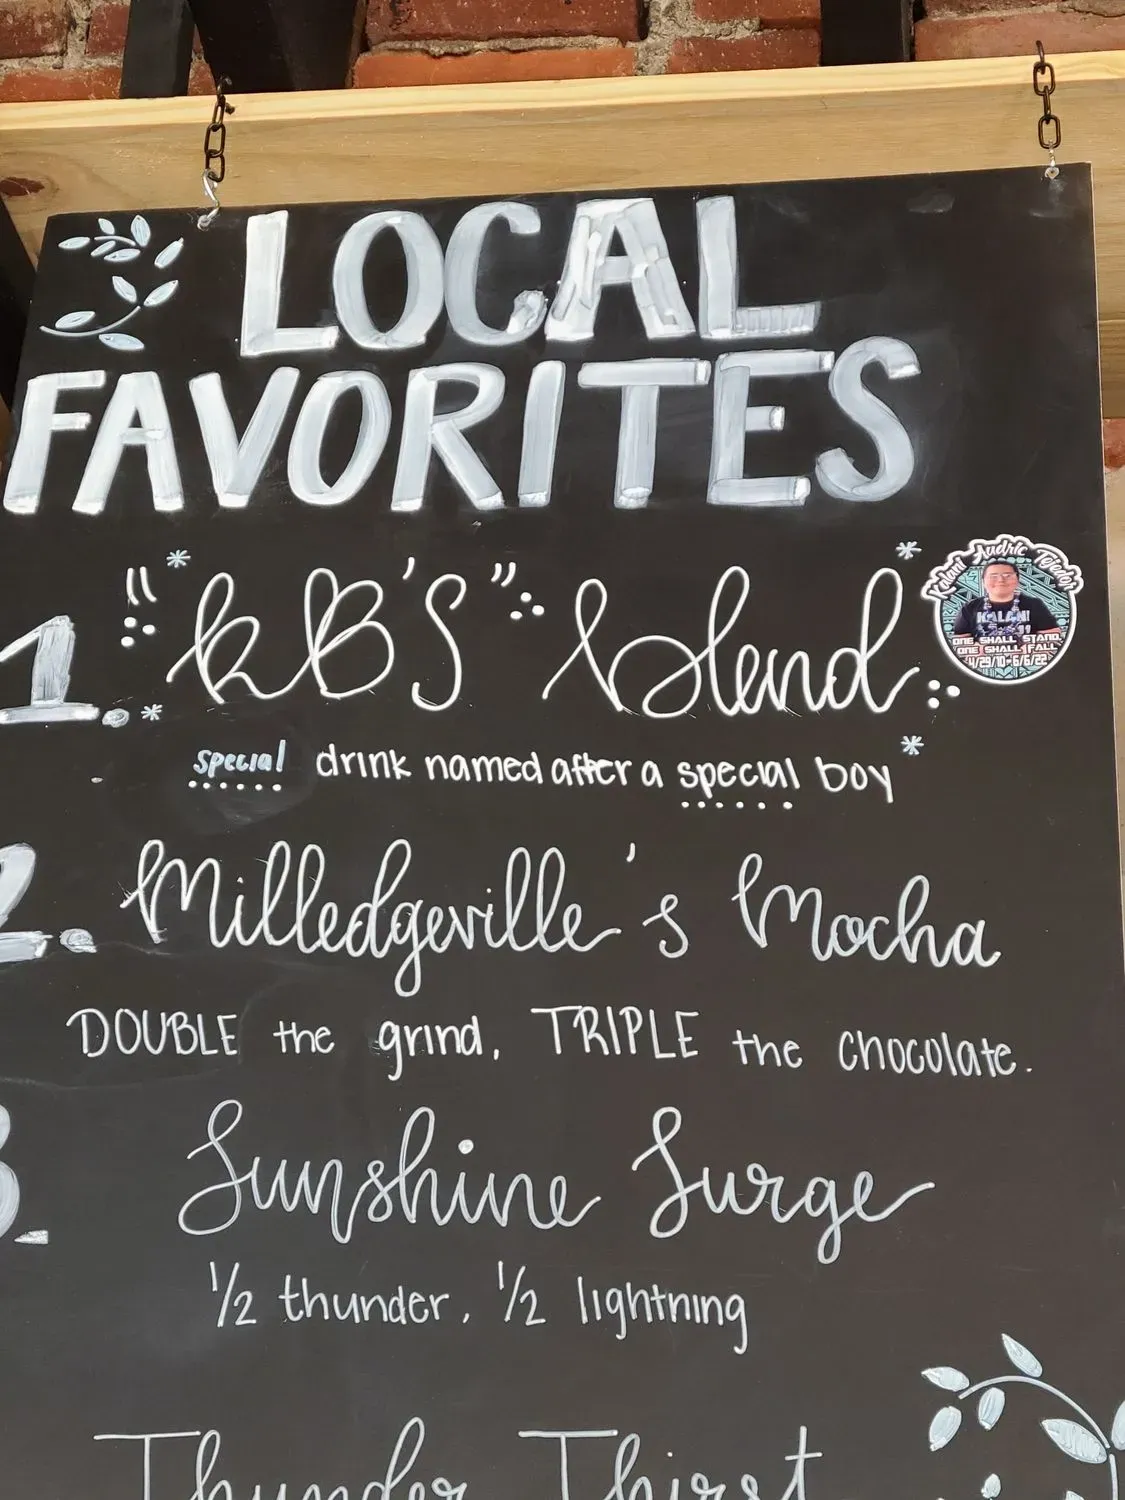 LOCAL
FAVORITES
1. "KB'S" blend
Kalani Audric Tejedor
KALANI
ONE SHALL STAND,
ONE SHALL FALL
4/29/10-6/6/22
special drink named after a special boy
2. Milledgeville's Mocha
DOUBLE the grind, TRIPLE the chocolate.
3. Sunshine Surge
1/2 thunder, 1/2 lightning
Thunder Thirst